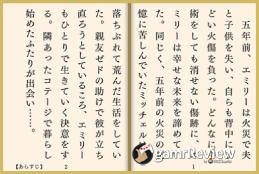 五年前、エミリーは火災で夫
と子供を失い、自らも背中にひ
どい火傷を負った。どんなに手
術をしても消せない傷跡に、エ
ミリーは幸せな未来を諦めてい
た。同じく、五年前の火災の記
憶に苦しんでいたミッチェルは
落ちぶれて荒んだ生活をしてい
た。親友ゼドの助けで彼が立ち
直ろうとしているころ、エミリー
もひとりで生きていく決意をす
る。隣あったコテージで暮らし
始めたふたりが出会い……。
1
【あらすじ】
2
gamrReview